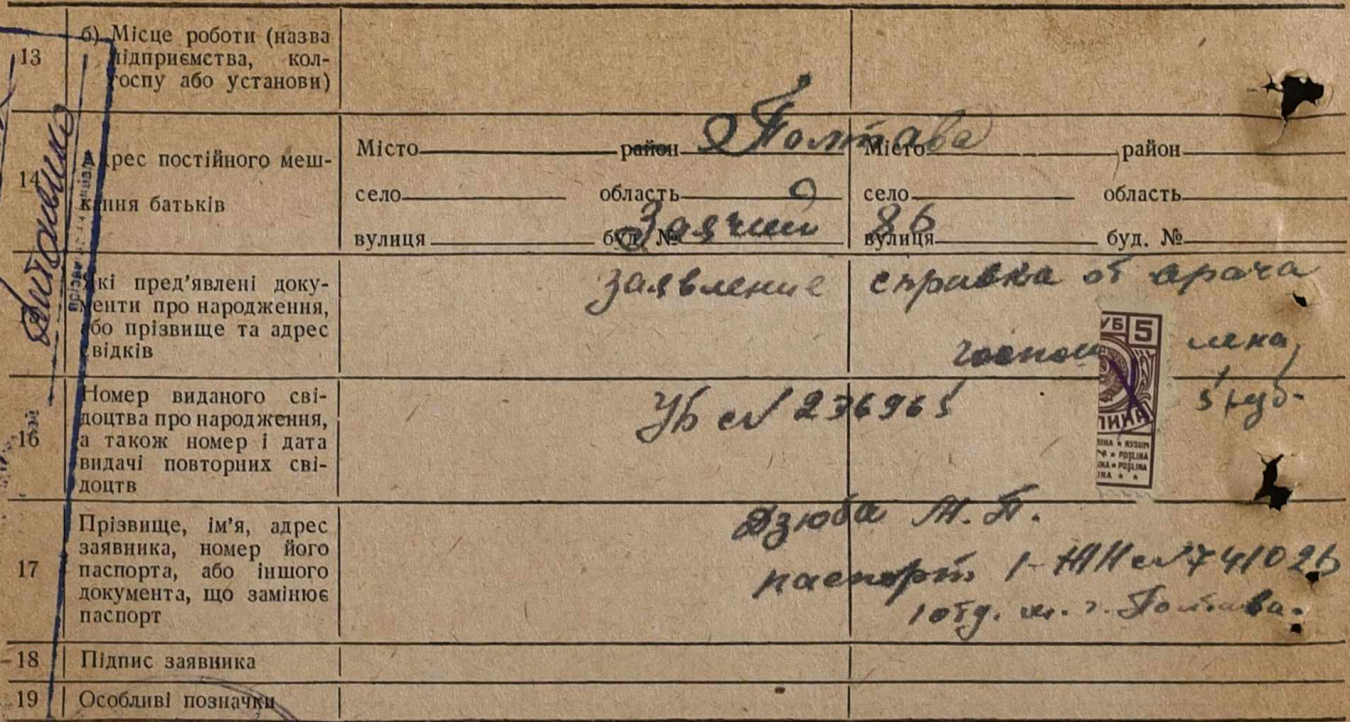 13 б) Місце роботи (назва
підприємства, кол-
госпу або установи)
14 Адрес постійного меш-
кання батьків
Місто район Місто район
г. Полтава
село область село область
вулиця буд. № вулиця буд. №
Заячий 86
Які пред'явлені доку-
менти про народження,
або прізвище та адрес
свідків
заявление справка от врача
16 Номер виданого сві-
доцтва про народження,
а також номер і дата
видачі повторних сві-
доцтв
УБ № 236965
5 руб.
УБ 5
17 Прізвище, ім'я, адрес
заявника, номер його
паспорта, або іншого
документа, що замінює
паспорт
Дзюба М. П.
паспорт 1-ЖН № 741025
1 отд. м. г. Полтава.
18 Підпис заявника
19 Особливі позначки